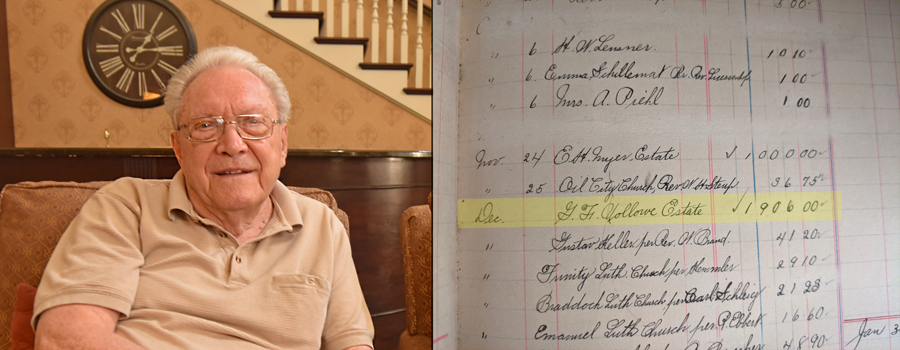 6 H. W. Lensner. 10 10
" 6. Emma Schillemat Pr. Rev. 1 00
" 6 Mrs. A. Piehl 1 00
Nov. 24 E. H. Myer Estate ✓ 1 0 0 0 00
" 25 Oil City Church, Rev. W. H. Steup. 36 75
Dec. G. Fr. Vollowe Estate ✓ 1 9 0 6 00
" Gustav Keller per Rev. W Brand. 41 20
" Trinity Luth. Church per Kemmler 29 10
" Braddock Luth Church, per Carl Schleicy 21 23
" Emanuel Luth Church per P. Ebbert 16 60
48 90
Jan 3